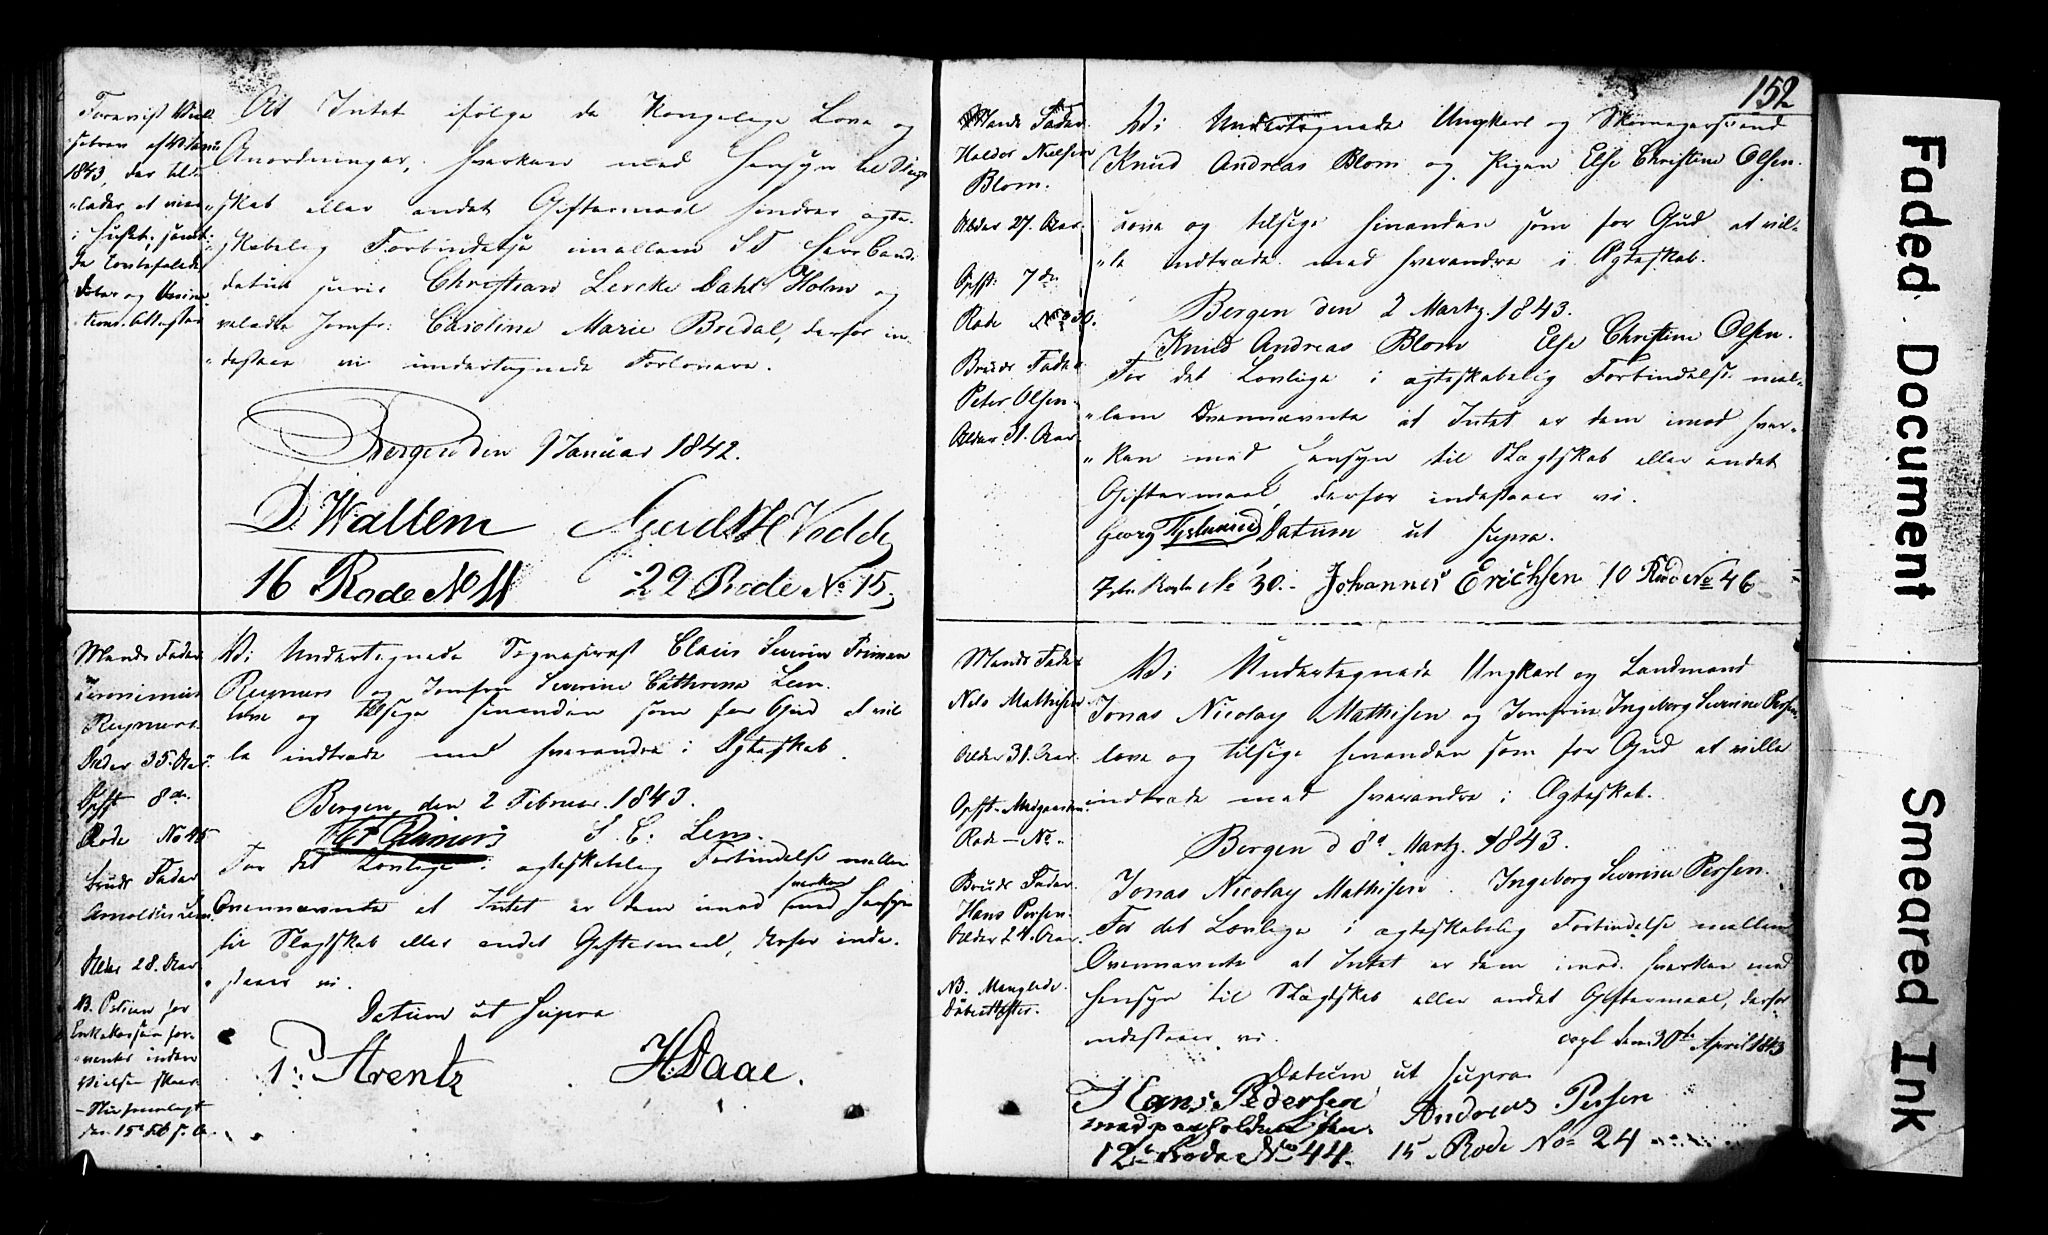 Forevist Viel-
sebrev af
1843, der tilde
i Huset, samt
Daaber og Vaccina-
tions Attester
At Intet ifølge de Kongelige Love og
Anordninger, hverken med Hensyn til Slægt-
skab eller andet Giftermaal hindrer ægte-
skabelig Forbindelse imellem Hr Candi-
datus juris Christian Lercke Dahl Holm og
velædle Jomfr: Caroline Marie Bredal, derfor in-
destaae vi undertegnede Forlovere.
Bergen den 9 Januar 1842.
D. Wallem
16 Rode No 11
29 Rode No 15
Mands Fader
Reymers
Alder 35. Aar
Opfst 8de
Rode No 45
Bruds Fader
Arnoldus Lem
Alder 28. Aar
NB
Enkekassen for-
ventes inden
Vielsen skeer
den 15 Feb
Vi Undertegnede Sogneprest Claus Severin Friman
Reymers og Jomfru Severine Cathrine Lem
love og tilsige hinanden som for Gud at vil
le indtræde med hverandre i Ægteskab.
Bergen den 2 Februar 1843.
S. C. Lem.
For det Lovlige i ægteskabelig Forbindelse mellem
hverken
Ovennævnte at Intet er dem imod med Hensyn
til Slægtskab eller andet Giftermaal, derfor inde-
staaer vi.
Datum ut Supra
Strentz
H. Daae.
152
Mands Fader
Halvor Nielsen
Blom.
Alder 27. Aar.
Opfst: 7de
Rode No 30.
Bruds Fader
Peter Olsen.
Alder 31. Aar
Vi Undertegnede Ungkarl og Skomagersvend
Knud Andreas Blom og Pigen Else Christine Olsen.
love og tilsige hinanden som for Gud at vil-
"le indtræde med hverandre i Ægteskab.
Bergen den 2 Martz. 1843.
Knud Andreas Blom Else Christine Olsen.
For det Lovlige i ægteskabelig Forbindelse mel-
"lem Ovennævnte at Intet er dem imod hver-
"ken med Hensyn til Slægtskab eller andet
Giftermaal, derfor indestaaer vi.
Georg Datum ut Supra.
7de Rode No 30. Johannes Erichsen 10 Rode No 46
Mands Fader
Nils Mathisen
Alder 31. Aar.
Opfst.
Rode — No
Bruds Fader.
Hans Persen.
Alder 24. Aar.
NB. Manglede
Døbeattester.
Vi Undertegnede Ungkarl og Landmand
Jonas Nicolay Mathisen og Jomfrue Ingeborg Severine Persen
love og tilsige hinanden som for Gud at ville
indtræde med hverandre i Ægteskab.
Bergen d 8de Martz. 1843.
Jonas Nicolay Mathisen. Ingeborg Severine Persen.
For det Lovlige i ægteskabelig Forbindelse mellem
Ovennævnte at Intet er dem imod hverken med
Hensyn til Slægtskab eller andet Giftermaal, derfor
indestaaer vi. copl. den 30te April 1843
Datum ut Supra
Hans Pedersen Andreas Persen
med paaholden Pen.
12te Rode No 44. 15 Rode No 24
Faded Document
Smeared Ink